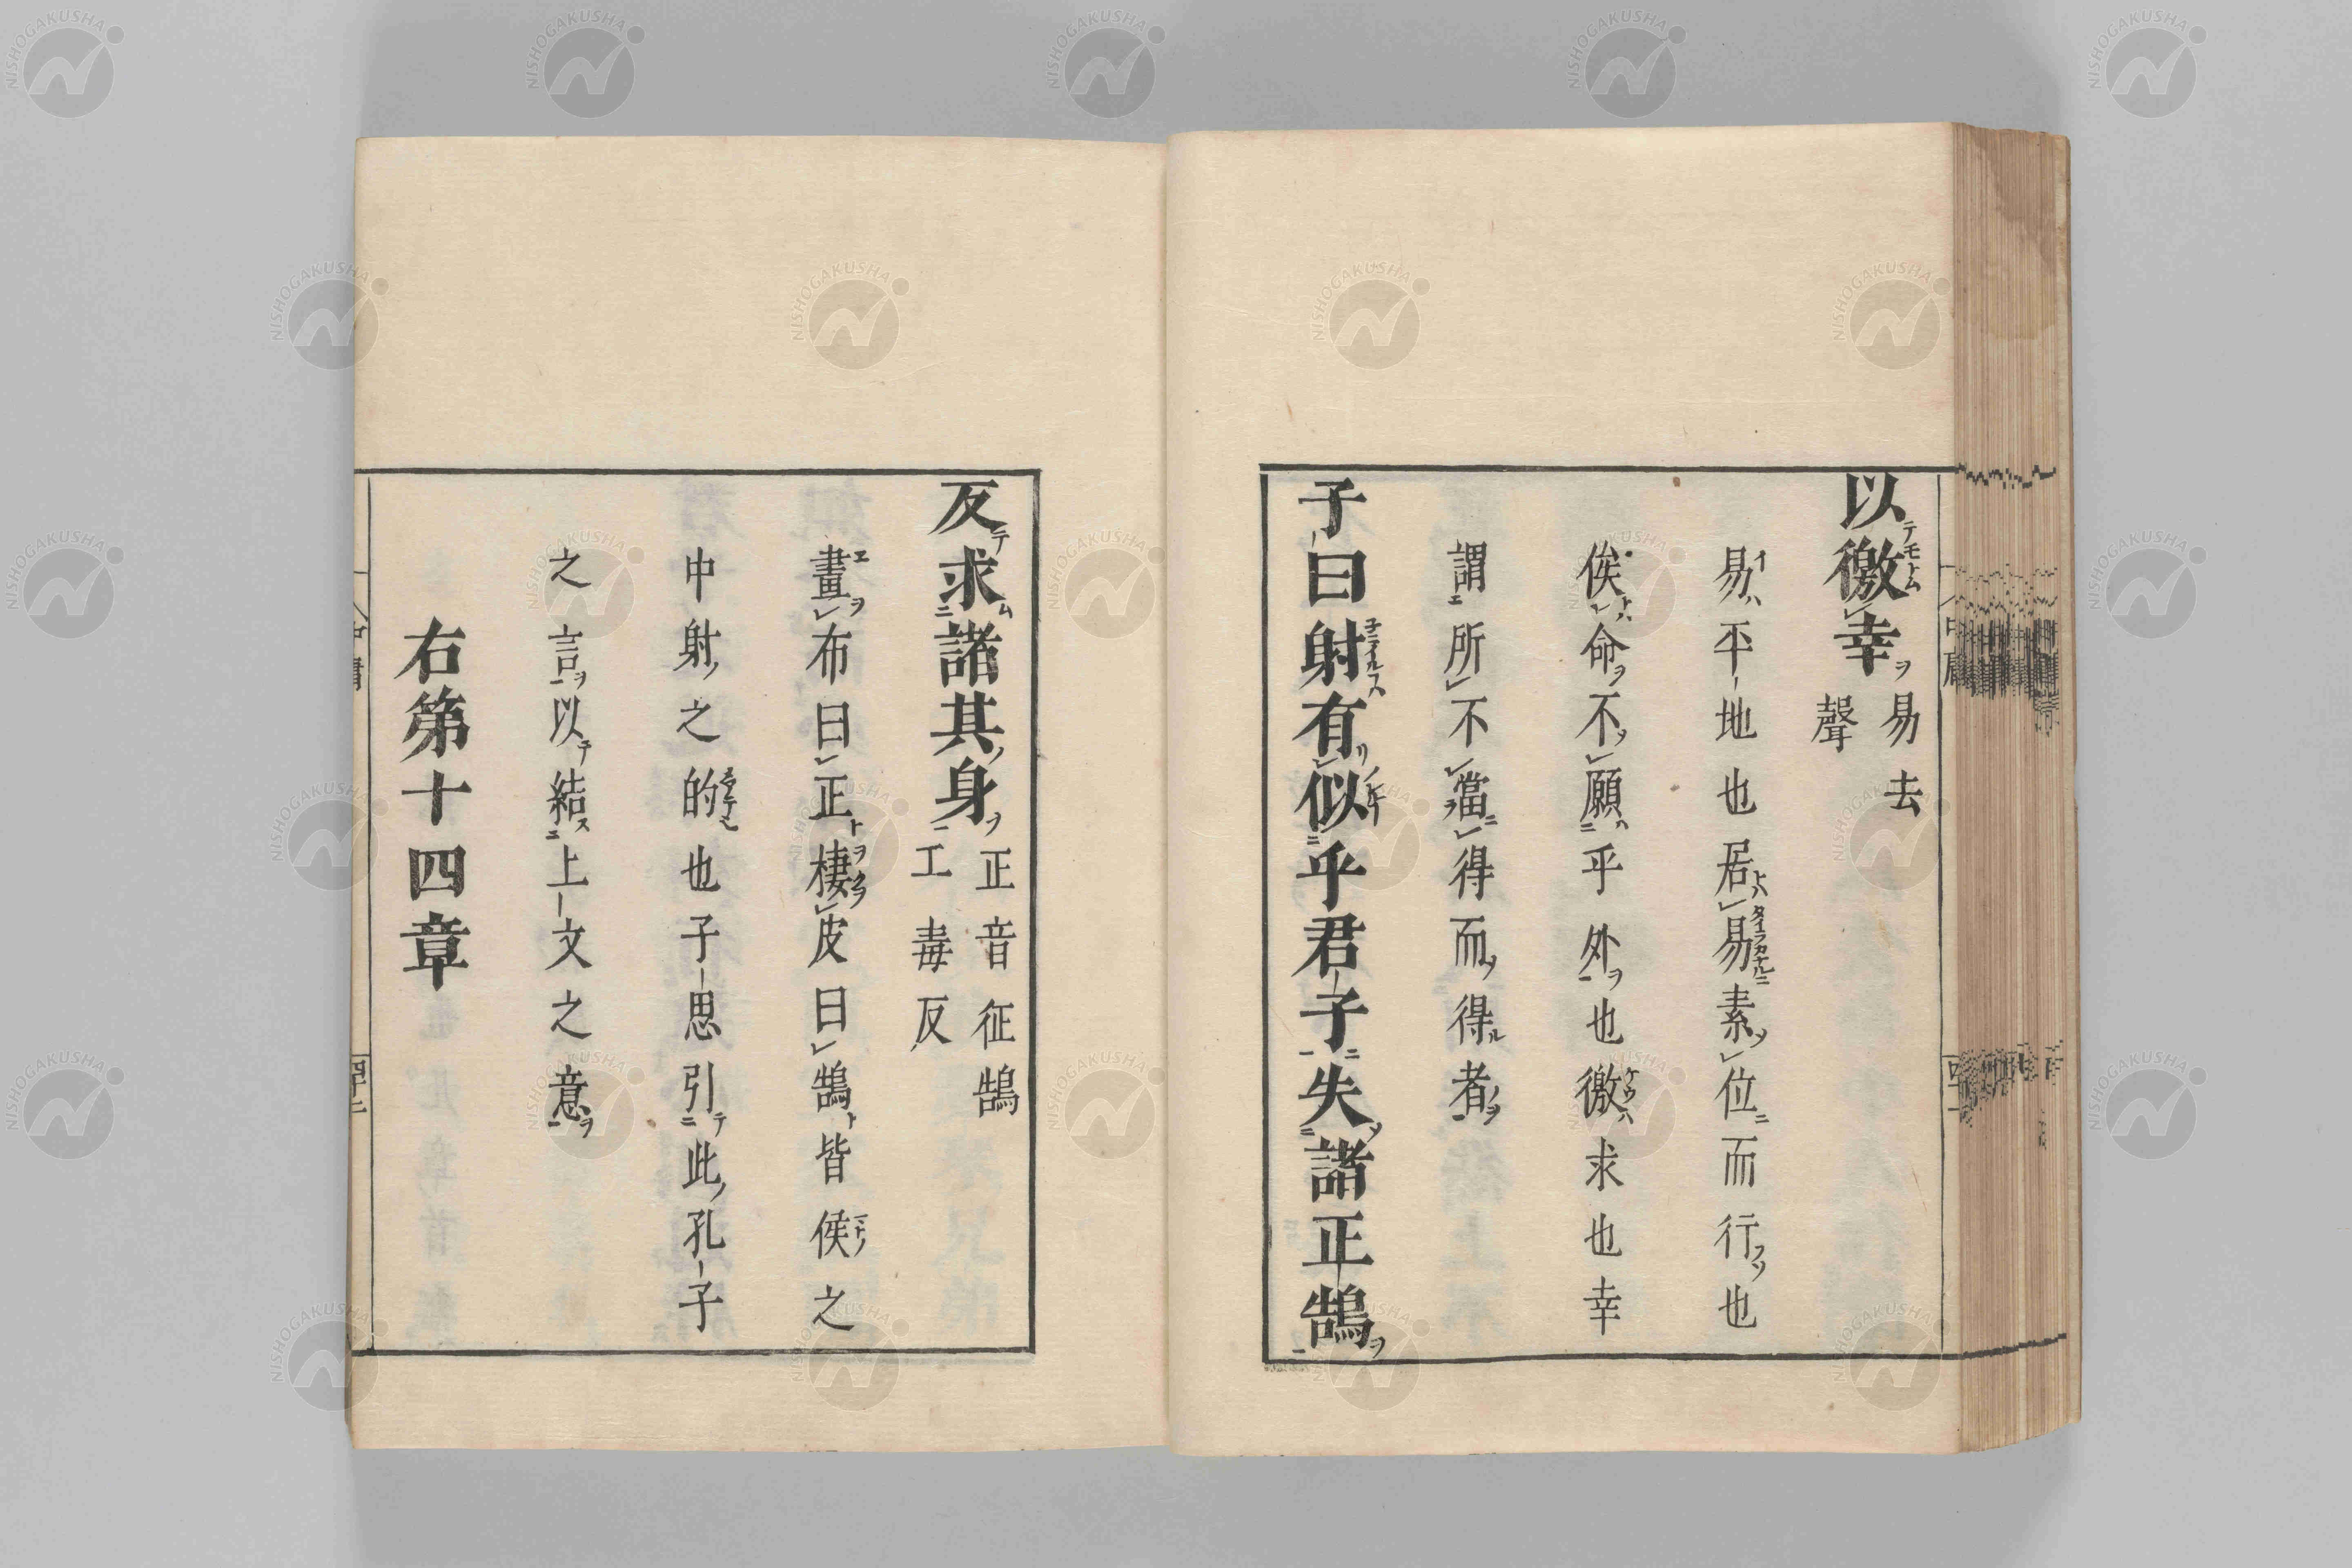 以徼幸 易去聲
易平地也居易素位而行也
俟命不願乎外也徼求也幸
謂所不當得而得者
子曰射有似乎君子失諸正鵠
反求諸其身 正音征鵠工毒反
畫布曰正棲皮曰鵠皆侯之
中射之的也子思引此孔子
之言以結上文之意
右第十四章
中庸
NISHOGAKUSHA